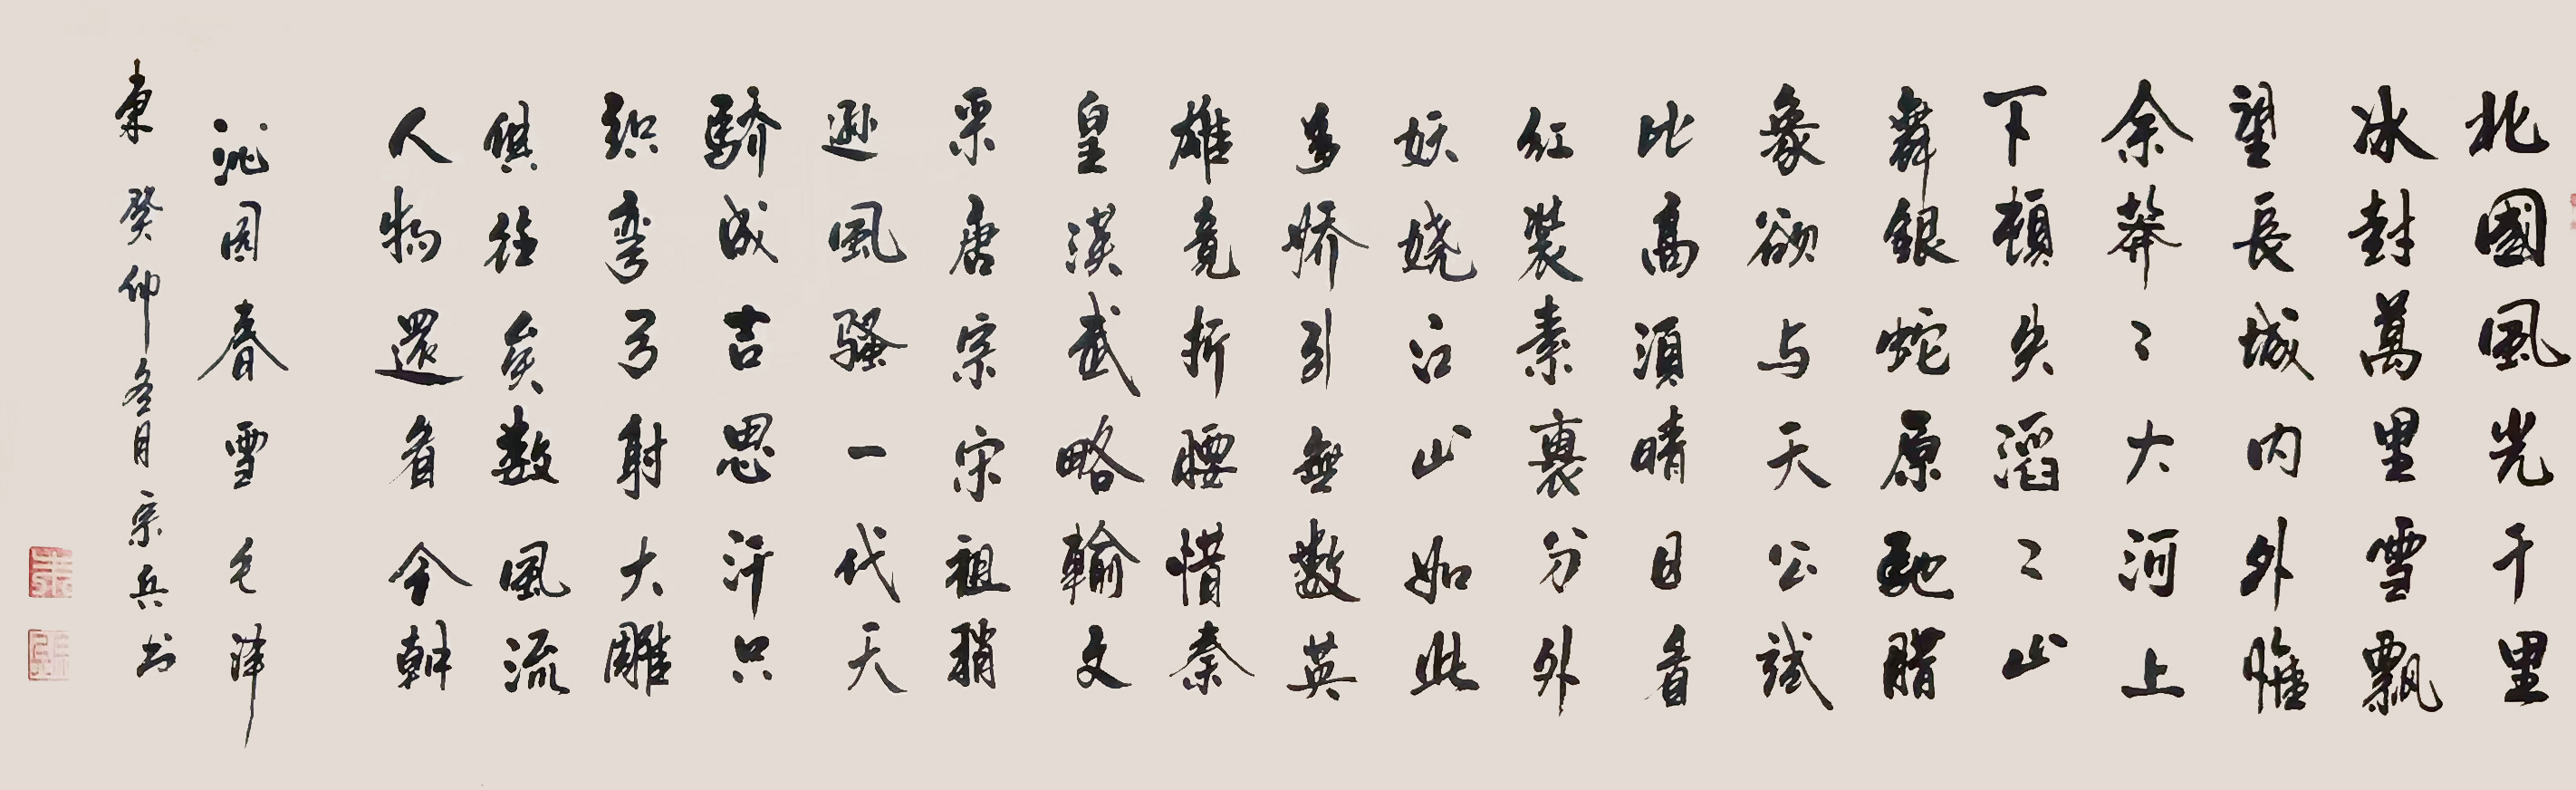 北國風光千里
冰封萬里雪飄
望長城内外惟
余莽〻大河上
下頓失滔〻山
舞銀蛇原馳腊
象欲与天公試
比高須晴日看
红裝素裹分外
妖娆江山如此
多娇引無數英
雄竟折腰惜秦
皇漢武略輸文
采唐宗宋祖稍
遜風騷一代天
驕成吉思汗只
织彎弓射大雕
俱往矣数風流
人物還看今朝
沁園春雪毛泽
東 癸卯冬月宗兵书